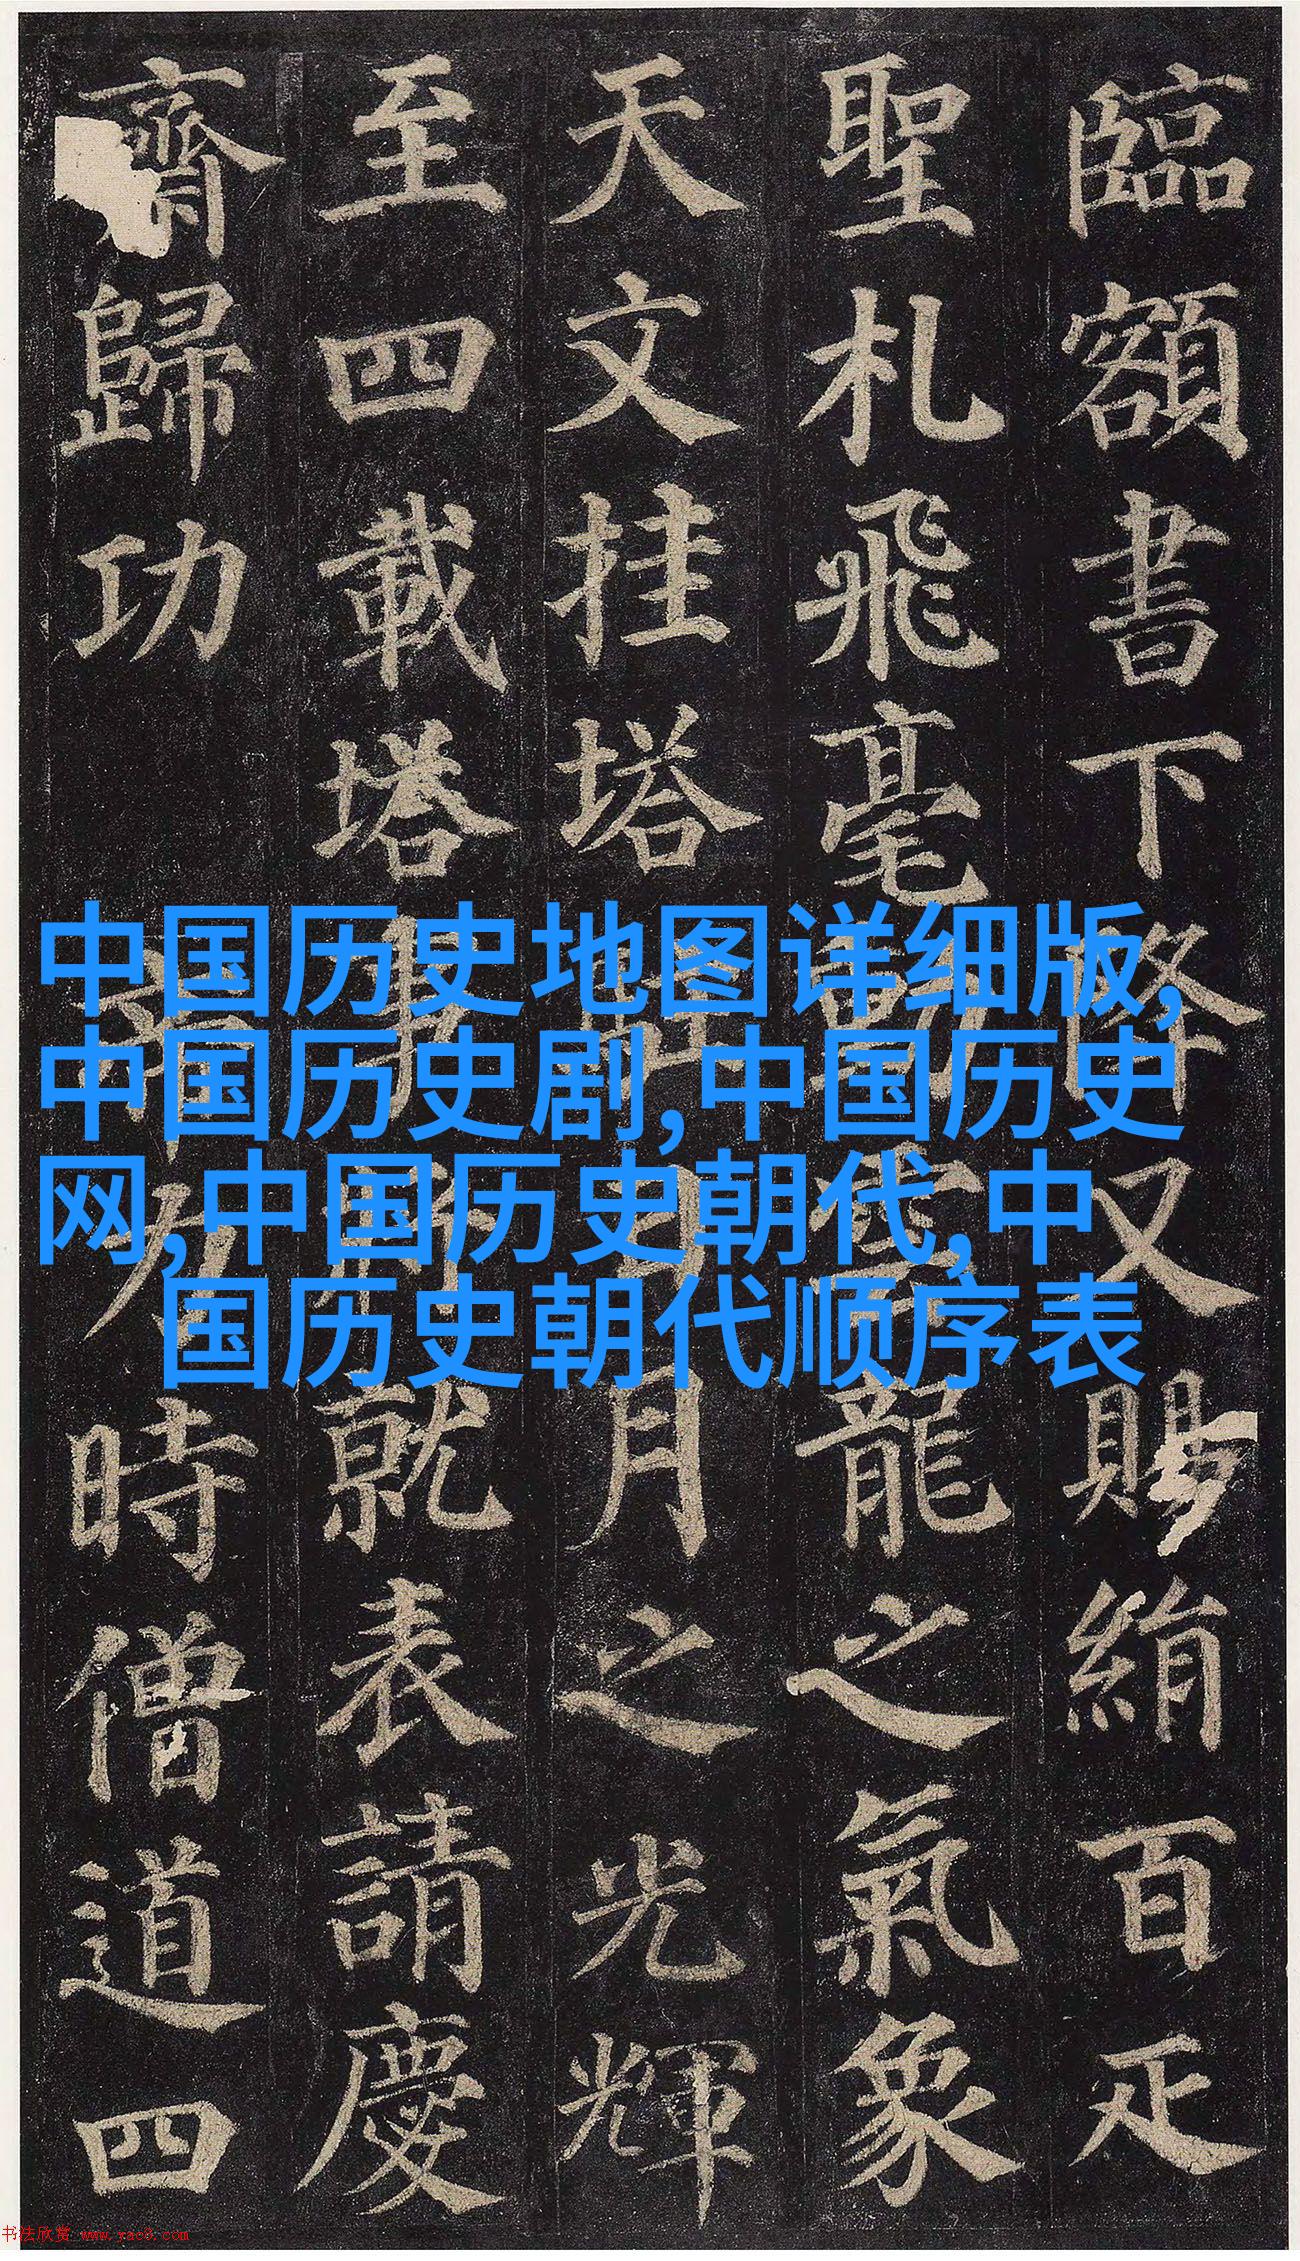 臨額書下降又賜絹百疋
聖札飛毫動雲龍之氣象
天文挂塔駐日月之光輝
至四載塔事將就表請慶
齋歸功帝力時僧道四
中国历史地图详细版,
中国历史剧,中国历史
网,中国历史朝代,中
国历史朝代顺序表
书法欣赏 www.yac8.com